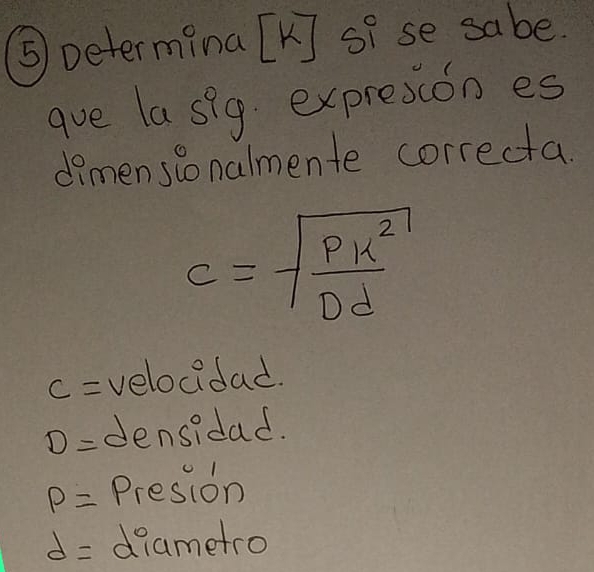 5 Determina [K] si se sabe.
que la sig. expresión es
dimensionalmente correcta.
c = √(PK²/Dd)
c = velocidad.
D = densidad.
P = Presión
d = diametro